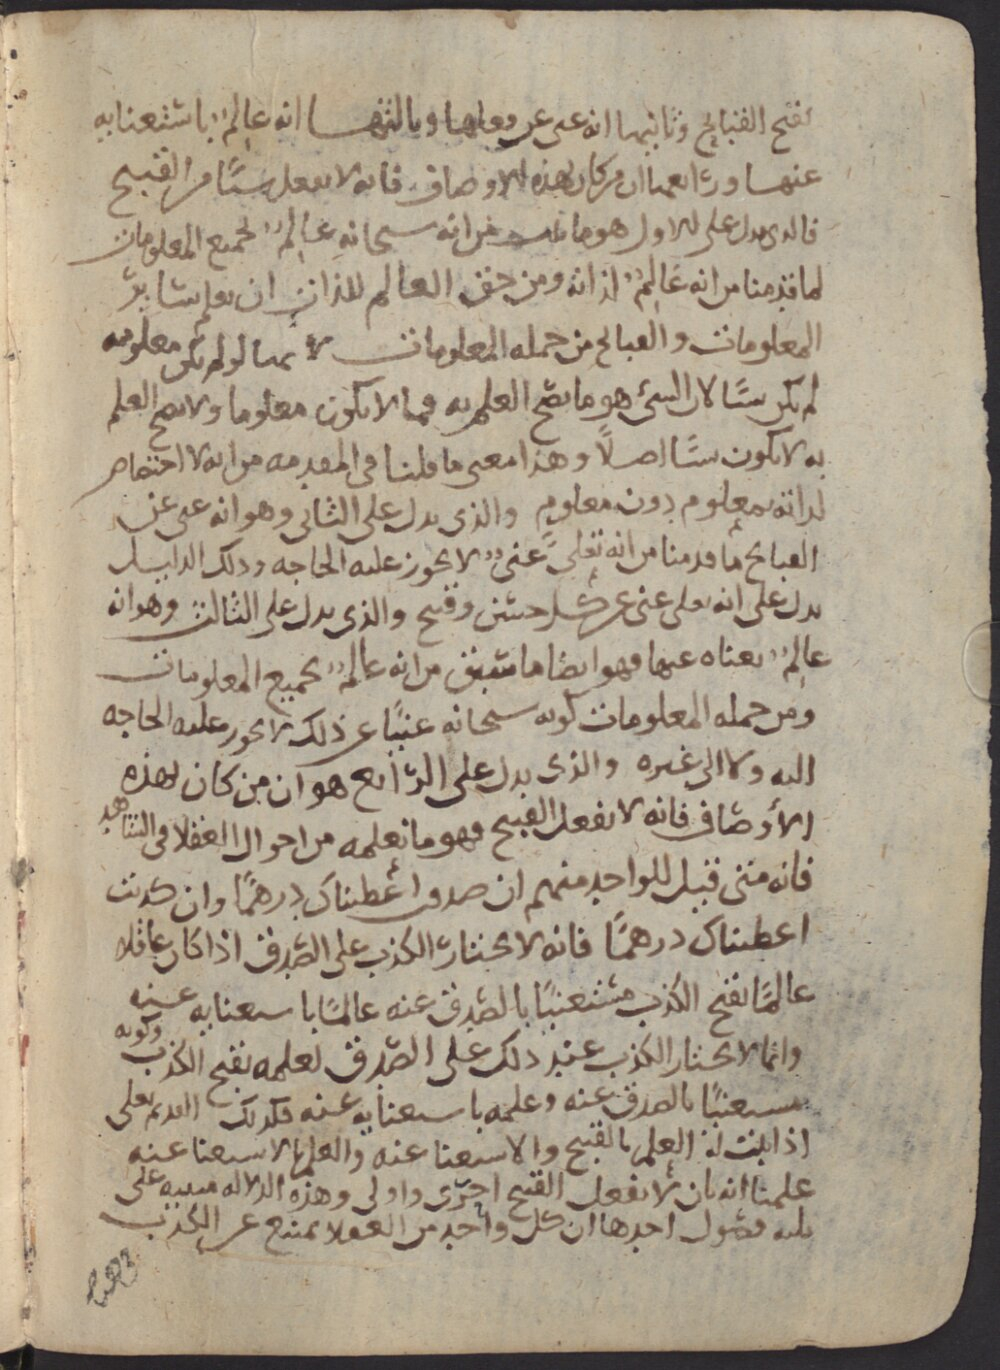 بقبح القبايح وثانيها انه غني عن فعلها وثالثها انه عالم باستغنايه
عنها ورابعها ان من كان بهذه الاوصاف فانه لا يفعل شيًا من القبيح
فالذي يدل على الاول هو ما من انه سبحانه عالم لجميع المعلومات
لما قدمنا من انه عالم لذاته ومن حق العالم للذات ان يعلم سائر
المعلومات والقبايح من جمله المعلومات لانها لو لم تكن معلومه
لم يكن شيًا لان الشيء هو ما يصح العلم به فما لا يكون معلوما ولا يصح العلم
به لا يكون شيًا اصلًا وهذا معنى ما قلنا في المقدمه من انه لا اختصاص
لذاته بمعلوم دون معلوم والذي يدل على الثاني وهو انه غني عن
القبايح ما قدمنا من انه تعلى غني لا يجوز عليه الحاجه وذلك الدليل
يدل على انه تعلى غني عن كل حسن وقبيح والذي يدل على الثالث وهو انه
عالم بغناه عنها فهو ايضا ما سبق من انه عالم بجميع المعلومات
ومن جمله المعلومات كونه سبحانه غنيًا عن ذلك لا يجوز عليه الحاجه
اليه ولا الى غيره والذي يدل على الرابع هو ان من كان بهذه
الأوصاف فانه لا يفعل القبيح فهو ما نعلمه من احوال العقلا في الشاهد
فانه متى قيل للواحد منهم ان صدقت اعطيناك درهمًا وان كذبت
اعطيناك درهمًا فانه لا يختار الكذب على الصدق اذا كان عاقلا
عالمًا بقبح الكذب مستغنيًا بالصدق عنه عالمًا باستغنايه عنه
وانما لا يختار الكذب عند ذلك على الصدق لعلمه بقبح الكذب وكونه
مستغنيًا بالصدق عنه وعلمه باستغنايه عنه فكذلك القديم تعلى
اذا ثبت له العلم بالقبيح والاستغنا عنه والعلم بالاستغنا عنه
علمنا انه بان لا يفعل القبيح احرى واولى وهذه الدلاله مبنيه على
ثلثه فصول احدها ان كل واحد من العقلا يمتنع عن الكذب